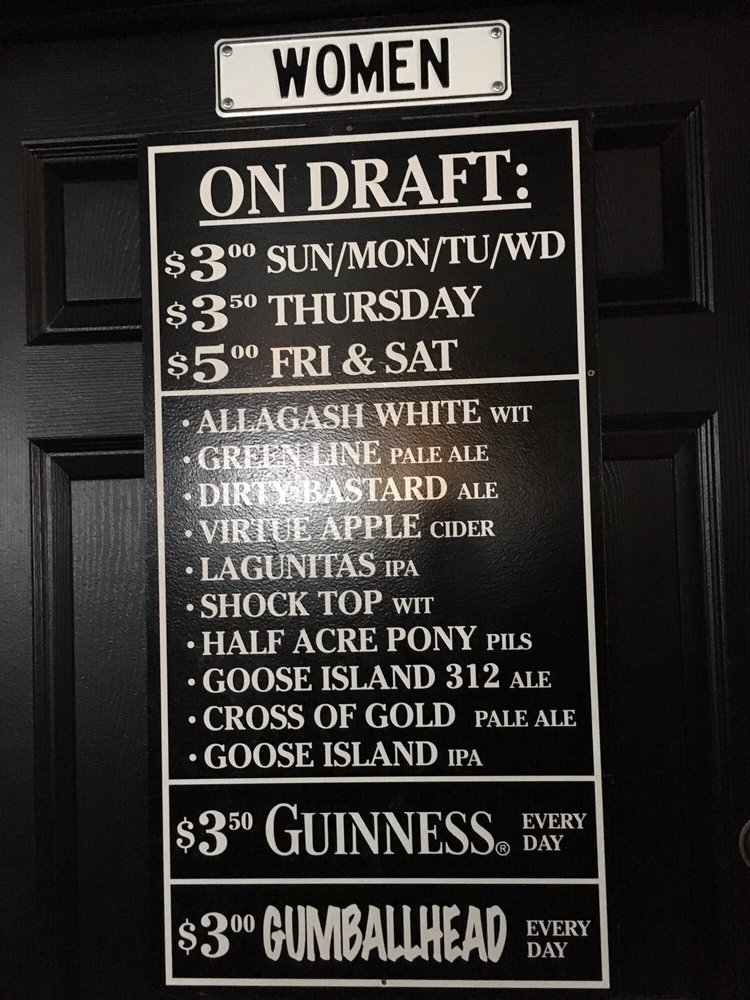 WOMEN
ON DRAFT:
$3⁰⁰ SUN/MON/TU/WD
$3⁵⁰ THURSDAY
$5⁰⁰ FRI & SAT
• ALLAGASH WHITE WIT
• GREEN LINE PALE ALE
• DIRTY BASTARD ALE
• VIRTUE APPLE CIDER
• LAGUNITAS IPA
• SHOCK TOP WIT
• HALF ACRE PONY PILS
• GOOSE ISLAND 312 ALE
• CROSS OF GOLD PALE ALE
• GOOSE ISLAND IPA
$3⁵⁰ GUINNESS® EVERY DAY
$3⁰⁰ GUMBALLHEAD EVERY DAY